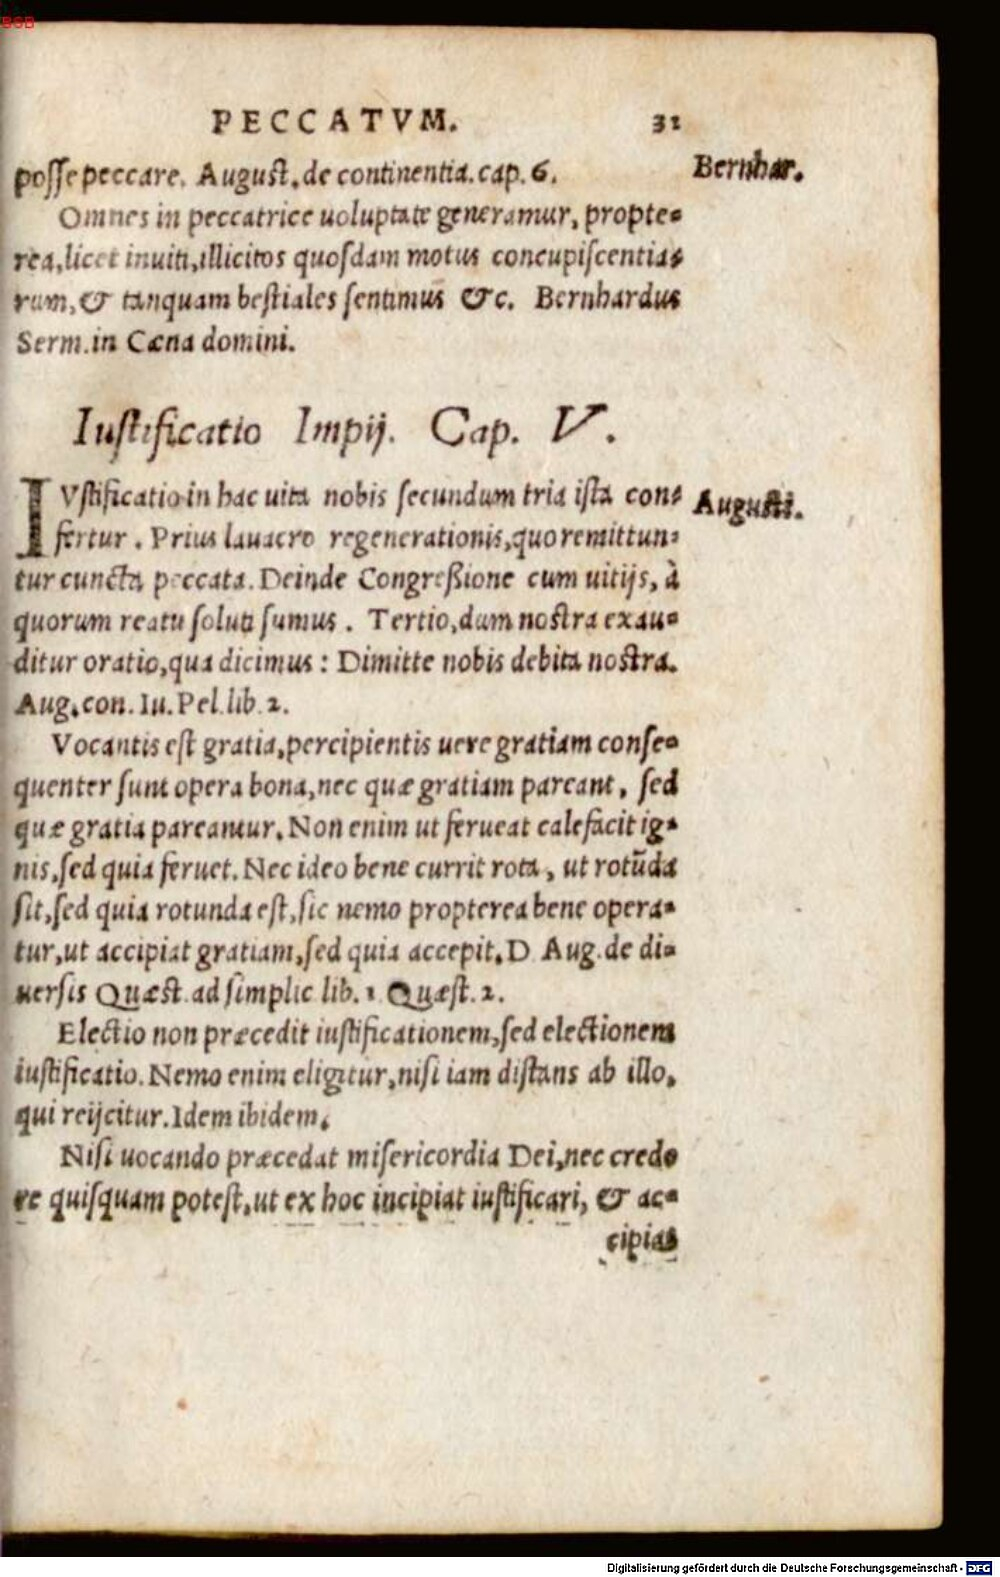 BSB
PECCATVM. 31
posse peccare. August. de continentia. cap. 6.
Bernhar.
Omnes in peccatrice uoluptate generamur, propte-
rea, licet inuiti, illicitos quosdam motus concupiscentia-
rum, & tanquam bestiales sentimus &c. Bernhardus
Serm. in Cæna domini.
Iustificatio Impij. Cap. V.
IVstificatio in hac uita nobis secundum tria ista con-
Augusti.
fertur. Prius lauacro regenerationis, quo remittun-
tur cuncta peccata. Deinde Congreßione cum uitijs, à
quorum reatu soluti sumus. Tertio, dum nostra exau-
ditur oratio, qua dicimus: Dimitte nobis debita nostra.
Aug. con. Iu. Pel. lib. 2.
Vocantis est gratia, percipientis uere gratiam conse-
quenter sunt opera bona, nec quæ gratiam pareant, sed
quæ gratia pareantur. Non enim ut ferueat calefacit ig-
nis, sed quia feruet. Nec ideo bene currit rota, ut rotũda
sit, sed quia rotunda est, sic nemo propterea bene opera-
tur, ut accipiat gratiam, sed quia accepit. D. Aug. de di-
uersis Quæst. ad simplic lib. 1 Quæst. 2.
Electio non præcedit iustificationem, sed electionem
iustificatio. Nemo enim eligitur, nisi iam distans ab illo,
qui reijcitur. Idem ibidem.
Nisi uocando præcedat misericordia Dei, nec crede
re quisquam potest, ut ex hoc incipiat iustificari, & ac-
cipiat
Digitalisierung gefördert durch die Deutsche Forschungsgemeinschaft - DFG